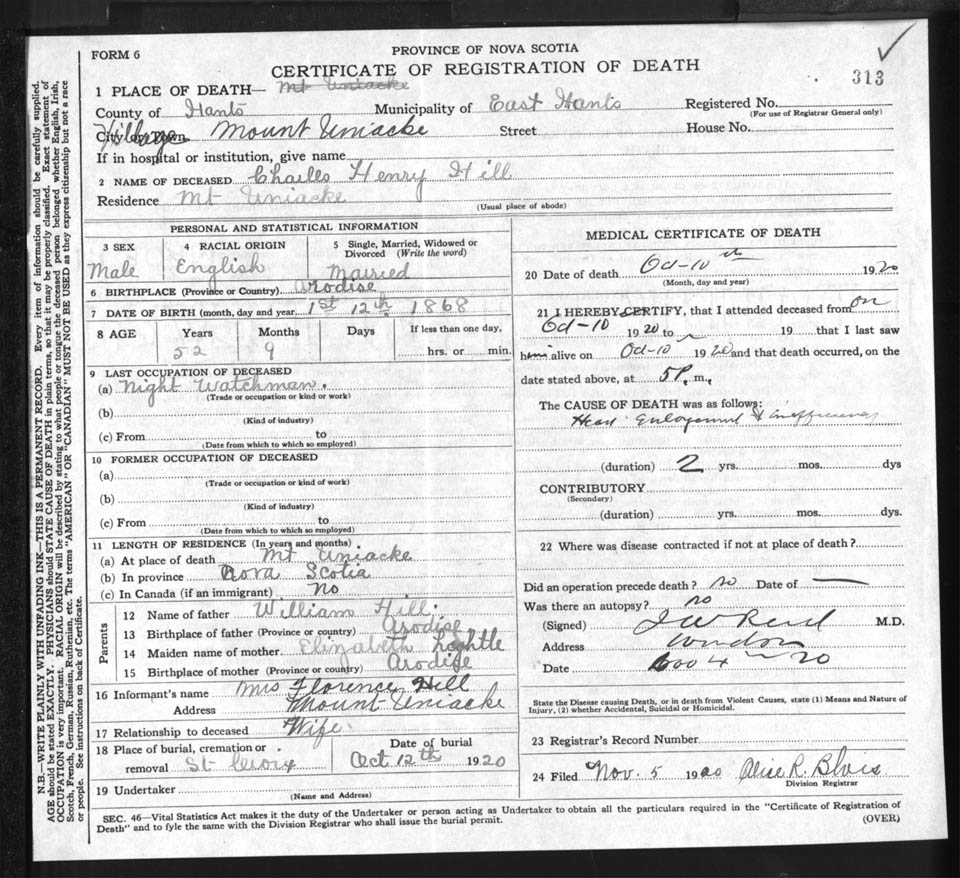 FORM 6
PROVINCE OF NOVA SCOTIA
CERTIFICATE OF REGISTRATION OF DEATH
313
1 PLACE OF DEATH— Mt Uniacke
County of Hants Municipality of East Hants Registered No.
(For use of Registrar General only)
Village Mount Uniacke Street House No.
If in hospital or institution, give name
2 NAME OF DECEASED Charles Henry Hill
Residence Mt Uniacke
(Usual place of abode)
PERSONAL AND STATISTICAL INFORMATION
3 SEX 4 RACIAL ORIGIN 5 Single, Married, Widowed or Divorced (Write the word)
Male English Married
6 BIRTHPLACE (Province or Country) Ardoise
7 DATE OF BIRTH (month, day and year 1st 12th 1868
8 AGE Years Months Days If less than one day,
52 9 hrs. or min.
9 LAST OCCUPATION OF DECEASED
(a) Night Watchman.
(Trade or occupation or kind or work)
(b)
(Kind of industry)
(c) From to
(Date from which to which so employed)
10 FORMER OCCUPATION OF DECEASED
(a)
(Trade or occupation or kind of work)
(b)
(Kind of industry)
(c) From to
(Date from which to which so employed)
11 LENGTH OF RESIDENCE (In years and months)
(a) At place of death Mt Uniacke
(b) In province Nova Scotia
(c) In Canada (if an immigrant) No
Parents
12 Name of father William Hill
13 Birthplace of father (Province or country) Ardoise
14 Maiden name of mother Elizabeth
15 Birthplace of mother (Province or country) Ardoise
16 Informant's name Mrs Florence Hill
Address Mount Uniacke
17 Relationship to deceased Wife
18 Place of burial, cremation or removal St Croix
Date of burial Oct 12th 1920
19 Undertaker
(Name and Address)
MEDICAL CERTIFICATE OF DEATH
20 Date of death Oct-10th 1920
(Month, day and year)
21 I HEREBY CERTIFY, that I attended deceased from on
Oct-10 1920 to 19 that I last saw
him alive on Oct-10 1920 and that death occurred, on the
date stated above, at 5 P. m.,
The CAUSE OF DEATH was as follows:
Heart Enlargement & inefficiency
(duration) 2 yrs. mos. dys
CONTRIBUTORY
(Secondary)
(duration) yrs. mos. dys.
22 Where was disease contracted if not at place of death?
Did an operation precede death? no Date of —
Was there an autopsy? no
(Signed) J W Reid M.D.
Address Windsor
Date Nov 4 20
State the Disease causing Death, or in death from Violent Causes, state (1) Means and Nature of
Injury, (2) whether Accidental, Suicidal or Homicidal.
23 Registrar's Record Number
24 Filed Nov. 5 1920 Alice R. Blois
Division Registrar
SEC. 46—Vital Statistics Act makes it the duty of the Undertaker or person acting as Undertaker to obtain all the particulars required in the "Certificate of Registration of
Death" and to fyle the same with the Division Registrar who shall issue the burial permit.
(OVER)
N.B.—WRITE PLAINLY WITH UNFADING INK—THIS IS A PERMANENT RECORD. Every item of information should be carefully supplied.
AGE should be stated EXACTLY. PHYSICIANS should STATE CAUSE OF DEATH in plain terms, so that it may be properly classified. Exact statement of
OCCUPATION is very important. RACIAL ORIGIN will be described by stating to what people or tongue the deceased person belonged whether English, Irish,
Scotch, French, German, Russian, Ruthenian, etc. The terms "AMERICAN" OR "CANADIAN" MUST NOT BE USED as they express citizenship but not a race
or people. See instructions on back of Certificate.